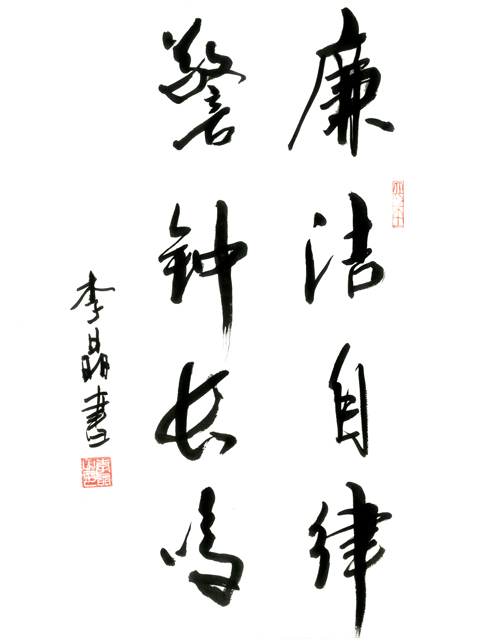 廉洁自律
警钟长鸣
李晶書